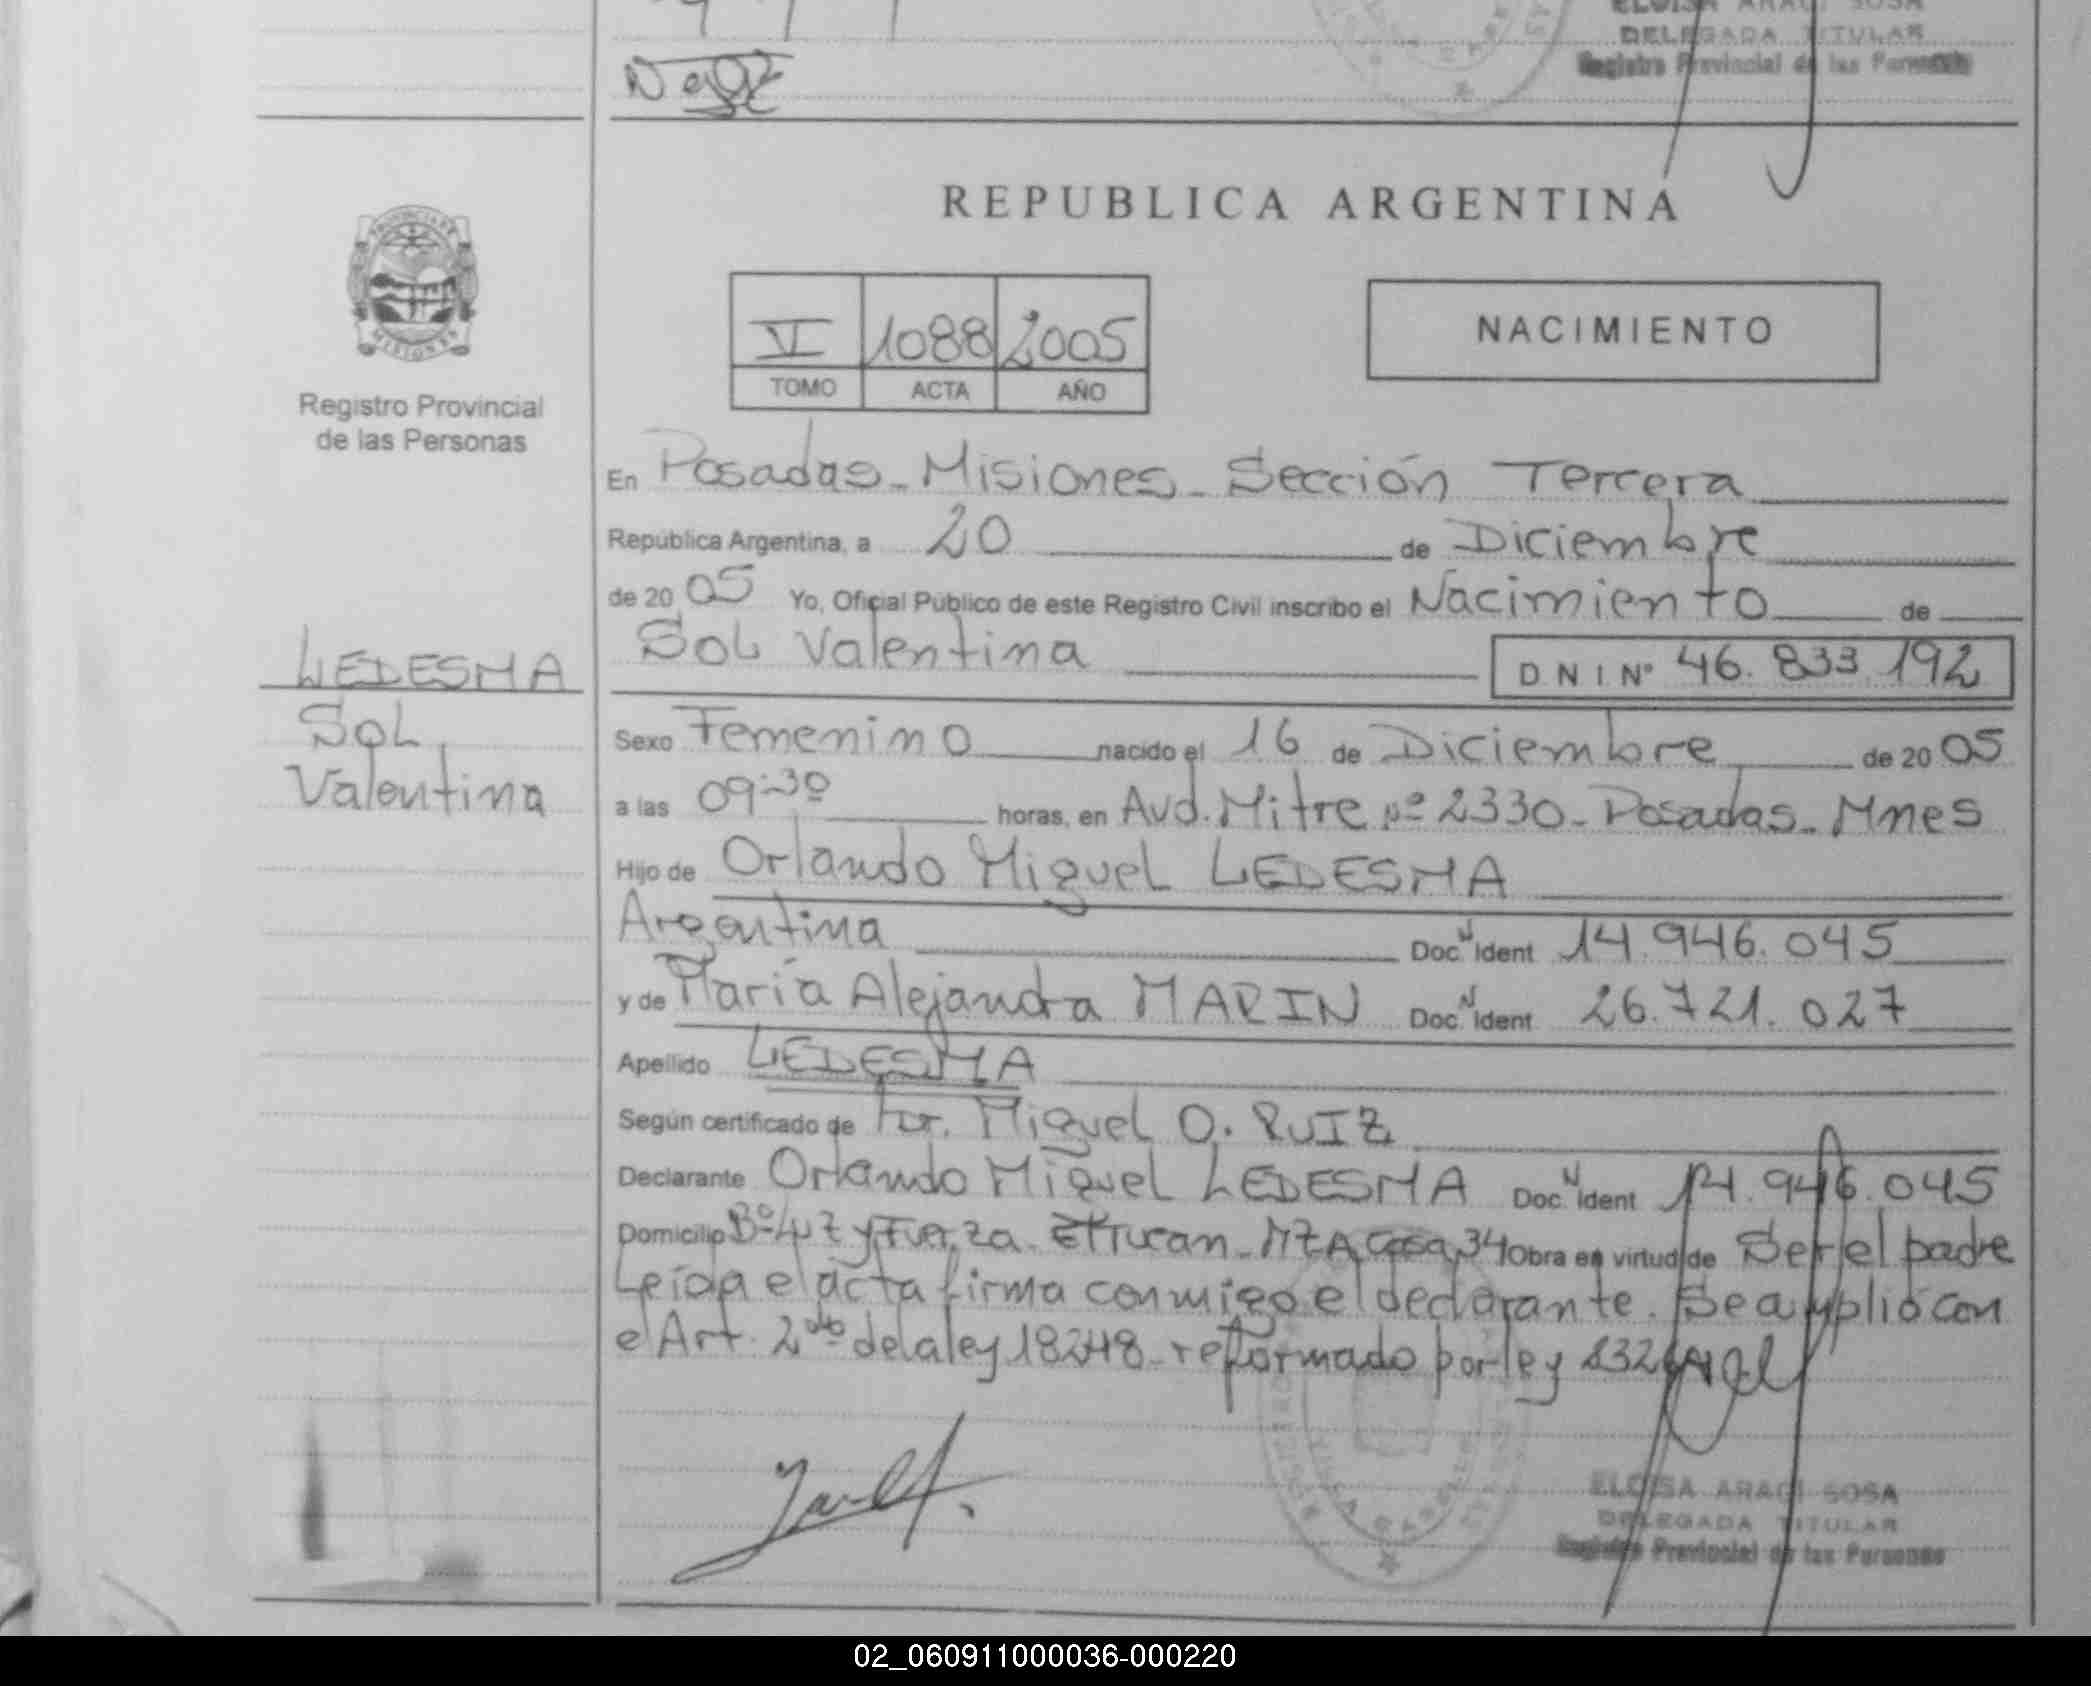 ELOISA ARACI SOSA
DELEGADA TITULAR
Registro Provincial de las Personas
REPUBLICA ARGENTINA
PROVINCIA DE
MISIONES
Registro Provincial
de las Personas
VI 1088 2005
TOMO ACTA AÑO
NACIMIENTO
En Posadas - Misiones - Sección Tercera
República Argentina, a 20 de Diciembre
de 20 05 Yo, Oficial Público de este Registro Civil inscribo el Nacimiento de
LEDESMA
Sol Valentina
D N I Nº 46.833.192
Sol
Valentina
Sexo Femenino nacido el 16 de Diciembre de 20 05
a las 09:30 horas, en Avd. Mitre nº 2330 - Posadas - Mnes
Hijo de Orlando Miguel LEDESMA
Argentina Doc. N Ident 14.946.045
y de María Alejandra MARIN Doc. N Ident 26.721.027
Apellido LEDESMA
Según certificado de Dr. Miguel O. RUIZ
Declarante Orlando Miguel LEDESMA Doc. N Ident 14.946.045
Domicilio Bº Luz y Fuerza El Tucan - MZ A Casa 34 Obra en virtud de Ser el padre
Leída el acta firma conmigo el declarante. Se amplió con
el Art. 2do de la ley 18248 - reformado por ley
ELOISA ARACI SOSA
DELEGADA TITULAR
Registro Provincial de las Personas
02_060911000036-000220